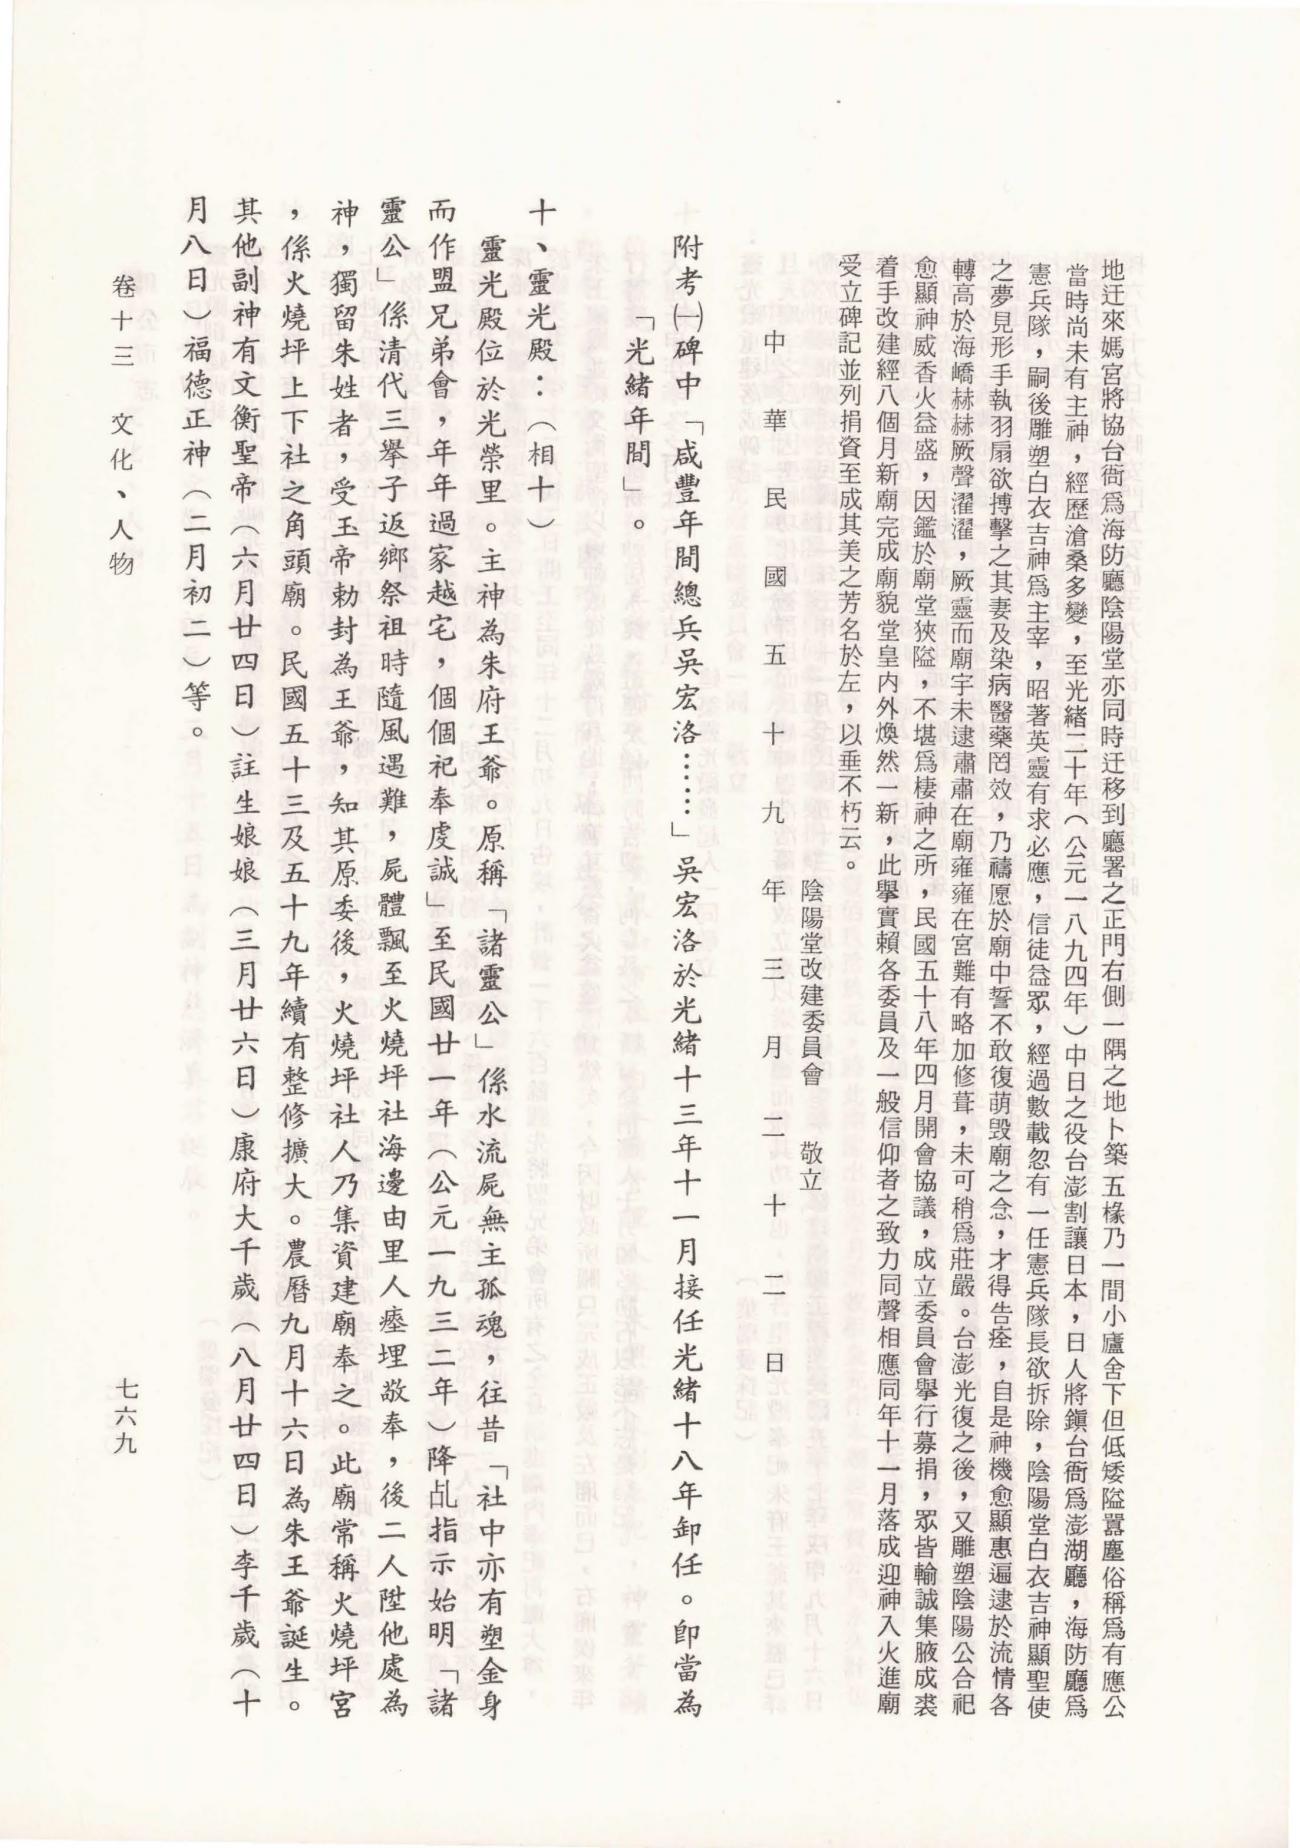 地迁來媽宮將協台衙爲海防廳陰陽堂亦同時迁移到廳署之正門右側一隅之地卜築五椽乃一間小廬舍下但低矮隘囂塵俗稱爲有應公
當時尚未有主神，經歷滄桑多變，至光緒二十年（公元一八九四年）中日之役台澎割讓日本，日人將鎭台衙爲澎湖廳，海防廳爲
憲兵隊，嗣後雕塑白衣吉神爲主宰，昭著英靈有求必應，信徒益眾，經過數載忽有一任憲兵隊長欲拆除，陰陽堂白衣吉神顯聖使
之夢見形手執羽扇欲搏擊之其妻及染病醫藥罔效，乃禱愿於廟中誓不敢復萌毀廟之念，才得告痊，自是神機愈顯惠遍逮於流情各
轉高於海嶠赫赫厥聲濯濯，厥靈而廟宇未逮肅肅在廟雍雍在宮難有略加修葺，未可稍爲莊嚴。台澎光復之後，又雕塑陰陽公合祀
愈顯神威香火益盛，因鑑於廟堂狹隘，不堪爲棲神之所，民國五十八年四月開會協議，成立委員會擧行募捐，眾皆輸誠集腋成裘
着手改建經八個月新廟完成廟貌堂皇內外煥然一新，此擧實賴各委員及一般信仰者之致力同聲相應同年十一月落成迎神入火進廟
受立碑記並列捐資至成其美之芳名於左，以垂不朽云。
陰陽堂改建委員會　敬立
中華民國五十九年三月二十二日
附考㈠碑中「咸豐年間總兵吳宏洛……」吳宏洛於光緒十三年十一月接任光緒十八年卸任。卽當為
「光緒年間」。
十、靈光殿：（相十）
靈光殿位於光榮里。主神為朱府王爺。原稱「諸靈公」係水流屍無主孤魂，往昔「社中亦有塑金身
而作盟兄弟會，年年過家越宅，個個祀奉虔誠」至民國廿一年（公元一九三二年）降乩指示始明「諸
靈公」係清代三擧子返鄉祭祖時隨風遇難，屍體飄至火燒坪社海邊由里人瘞埋敬奉，後二人陞他處為
神，獨留朱姓者，受玉帝勅封為王爺，知其原委後，火燒坪社人乃集資建廟奉之。此廟常稱火燒坪宮
，係火燒坪上下社之角頭廟。民國五十三及五十九年續有整修擴大。農曆九月十六日為朱王爺誕生。
其他副神有文衡聖帝（六月廿四日）註生娘娘（三月廿六日）康府大千歲（八月廿四日）李千歲（十
月八日）福德正神（二月初二）等。
卷十三　文化、人物
七六九